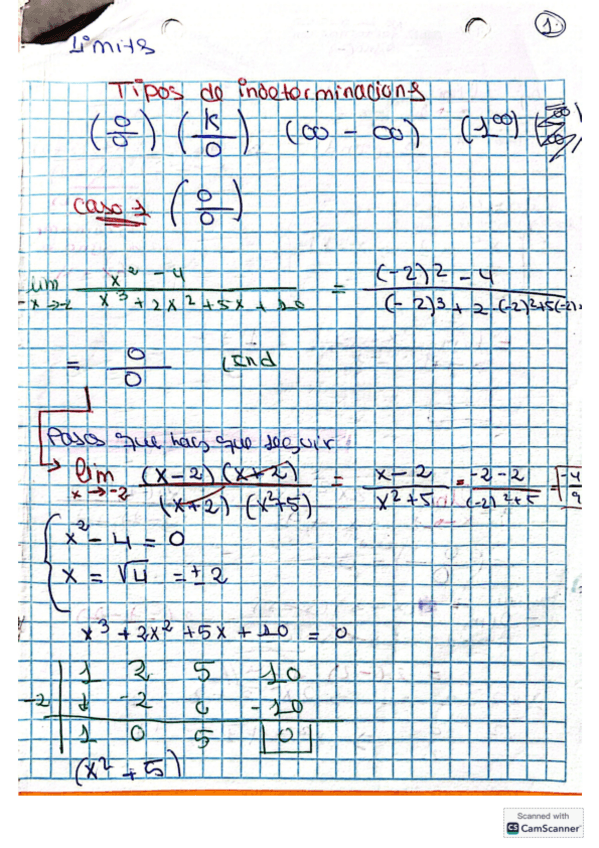 1
Limits
Tipos de indeterminacions
(0/0) (K/0) (∞ - ∞) (1^∞)
caso 1 (0/0)
lim x→-2 (x² - 4)/(x³ + 2x² + 5x + 10) = ((-2)² - 4)/((-2)³ + 2·(-2)²+5(-2)
= 0/0 (Ind
Pasos que hay que seguir
lim x→-2 ((x-2)(x+2))/((x+2)(x²+5)) = (x-2)/(x²+5) = (-2-2)/((-2)²+5) = -4/9
x² - 4 = 0
x = √4 = ±2
x³ + 2x² + 5x + 10 = 0
1 2 5 10
-2 ↓ -2 0 -10
1 0 5 0
(x² + 5)
Scanned with
CS CamScanner